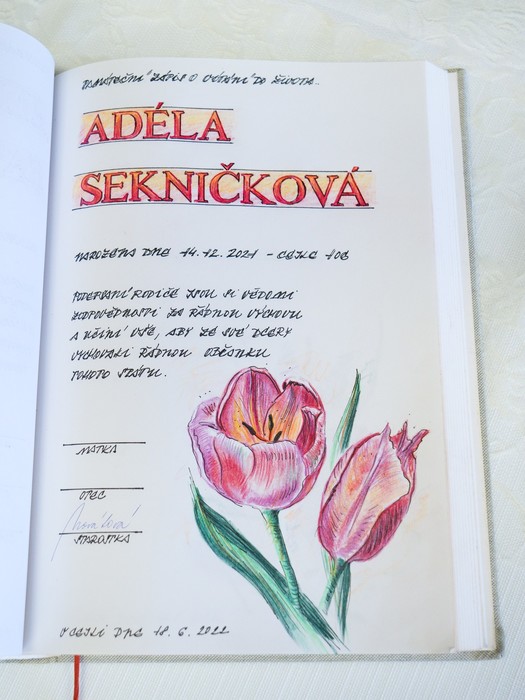 PAMÁTEČNÍ ZÁPIS O VÍTÁNÍ DO ŽIVOTA..
ADÉLA
SEKNIČKOVÁ
NAROZENA DNE 14.12.2021 - CEJLE 106
PODEPSANÍ RODIČE JSOU SI VĚDOMI
ZODPOVĚDNOSTI ZA ŘÁDNOU VÝCHOVU
A UČINÍ VŠE, ABY ZE SVÉ DCERY
VYCHOVALI ŘÁDNOU OBČANKU
TOHOTO STÁTU.
MATKA
OTEC
STAROSTKA
V CEJLI DNE 18.6.2022